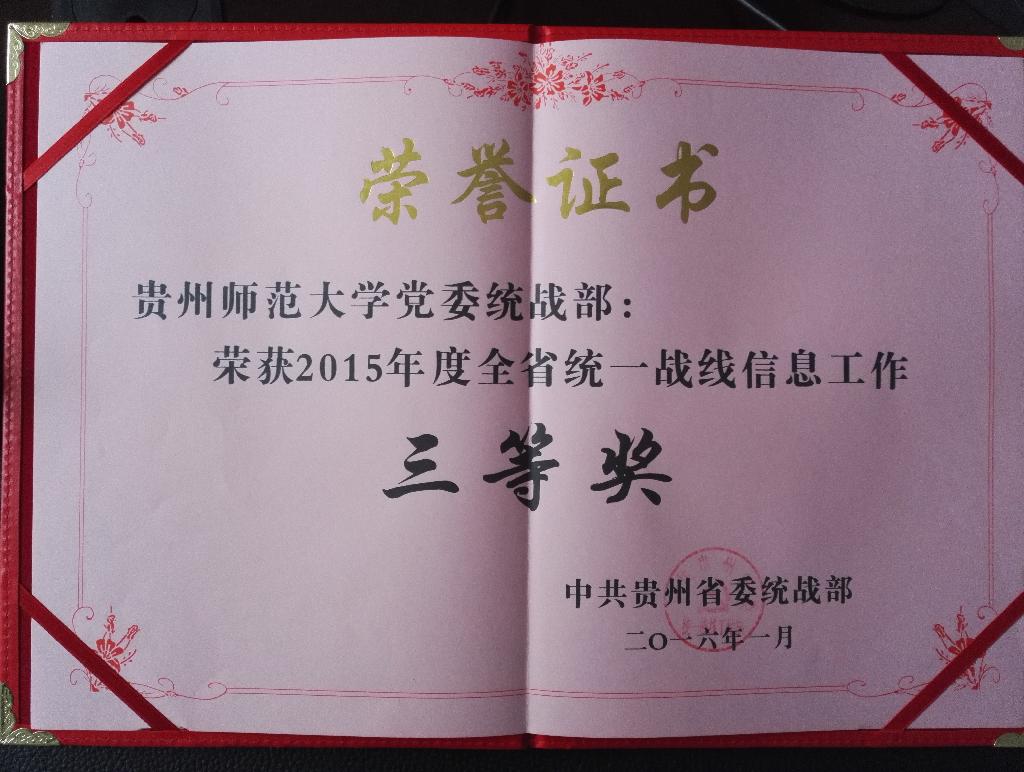 荣誉证书
贵州师范大学党委统战部：
荣获2015年度全省统一战线信息工作
三等奖
中共贵州省委统战部
二〇一六年一月